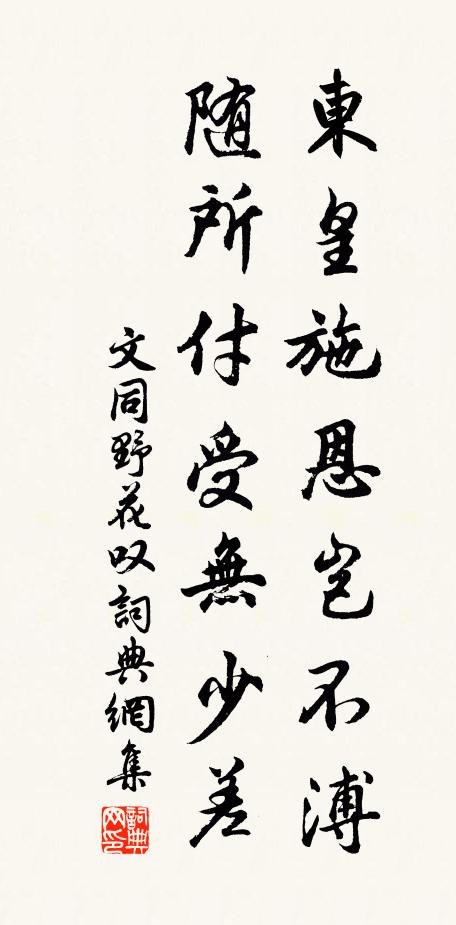 東皇施恩豈不溥
随所付受無少差
文同野花叹詞典網集
詞典网印